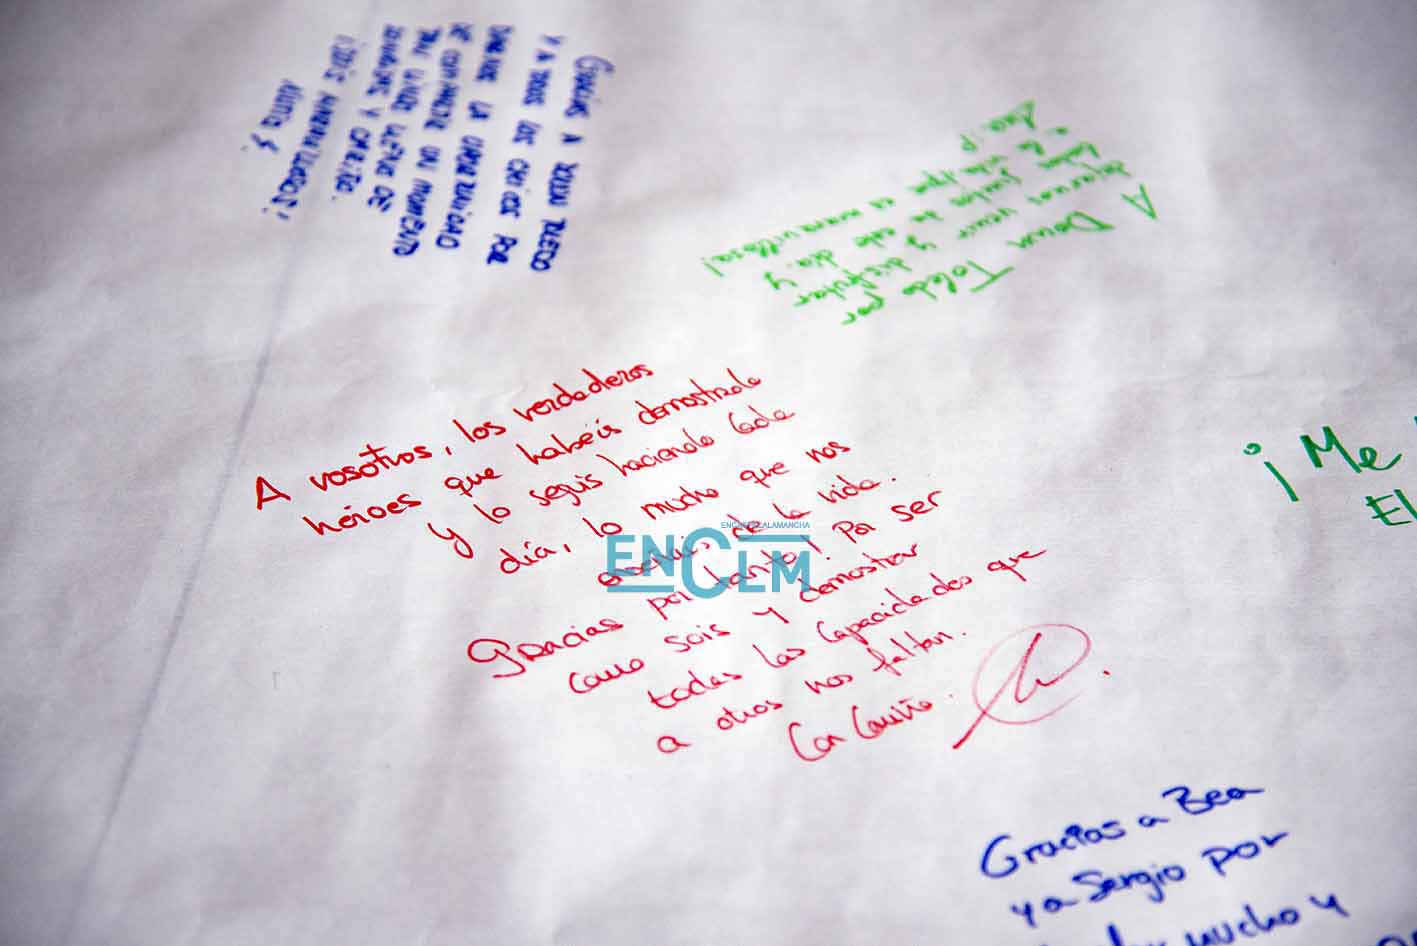 Gracias a Down Toledo
y a todos los chicos por
darnos la oportunidad
de compartir un momento
tan lindo lleno de
y cariño.
¡Sois maravillosos!
A Down Toledo por
dejarnos venir y disfrutar
juntos de este día. y
a la vida que es maravillosa!
A vosotros, los verdaderos
héroes que habéis demostrado
y lo seguis haciendo cada
día, lo mucho que nos
de la vida.
Gracias por tanto! Por ser
como sois y demostrar
todas las capacidades que
a otros nos faltan.
Con Cariño.
ENCASTILLALAMANCHA
ENCLM
¡Me
El
Gracias a Bea
y a Sergio por
mucho y